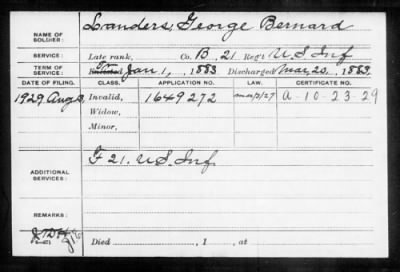 NAME OF SOLDIER: Landers, George Bernard
SERVICE: Late rank, Co. B, 21 Reg't U S Inf
TERM OF SERVICE: Enlisted Jan 1, 1883 Discharged Mar, 23, 1883
DATE OF FILING. CLASS. APPLICATION NO. LAW. CERTIFICATE NO.
1929 Aug Invalid, 1649272 A-10-23-29
Widow,
Minor,
ADDITIONAL SERVICES: F 21. U.S. Inf.
REMARKS:
Died , 1 , at